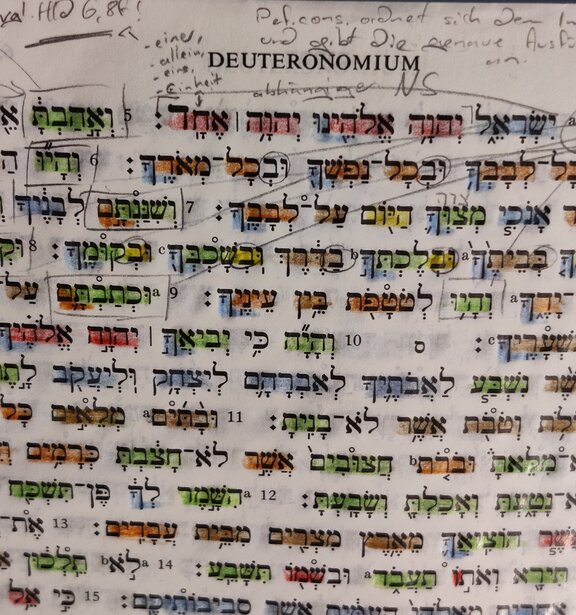 Pef.cons. ordnet sich dem
und gibt die genaue
- einer,
- allein,
- eins,
- Einheit
abhängiger NS
DEUTERONOMIUM
יִשְׂרָאֵל יְהוָה אֱלֹהֵינוּ יְהוָה ׀ אֶחָד׃ 5 וְאָהַבְתָּ
כָל־לְבָבְךָ וּבְכָל־נַפְשְׁךָ וּבְכָל־מְאֹדֶךָ׃ 6 וְהָיוּ
אָנֹכִי מְצַוְּךָ הַיּוֹם עַל־לְבָבֶךָ׃ 7 וְשִׁנַּנְתָּם לְבָנֶיךָ
בְּבֵיתֶךָ a וּבְלֶכְתְּךָ b בַדֶּרֶךְ וּבְשָׁכְבְּךָ c וּבְקוּמֶךָ׃ 8
יָדֶךָ a וְהָיוּ לְטֹטָפֹת בֵּין עֵינֶיךָ׃ 9 וּכְתַבְתָּם a עַל
שְׁעָרֶיךָ c׃ ס 10 וְהָיָה כִּי יְבִיאֲךָ ׀ יְהוָה אֱלֹהֶיךָ
נִשְׁבַּע לַאֲבֹתֶיךָ לְאַבְרָהָם לְיִצְחָק וּלְיַעֲקֹב
וְטֹבֹת אֲשֶׁר לֹא־בָנִיתָ׃ 11 וּבָתִּים a מְלֵאִים כָּל
מִלֵּאתָ b וּבֹרֹת חֲצוּבִים אֲשֶׁר לֹא־חָצַבְתָּ כְּרָמִים
נָטָעְתָּ וְאָכַלְתָּ וְשָׂבָעְתָּ׃ 12 a הִשָּׁמֶר לְךָ פֶּן־תִּשְׁכַּח
הוֹצִיאֲךָ מֵאֶרֶץ מִצְרַיִם מִבֵּית עֲבָדִים׃ 13 אֶת־
תִּירָא וְאֹתוֹ תַעֲבֹד a וּבִשְׁמוֹ תִּשָּׁבֵעַ׃ 14 a לֹא b תֵלְכוּן
אֲשֶׁר סְבִיבוֹתֵיכֶם׃ 15 כִּי אֵל